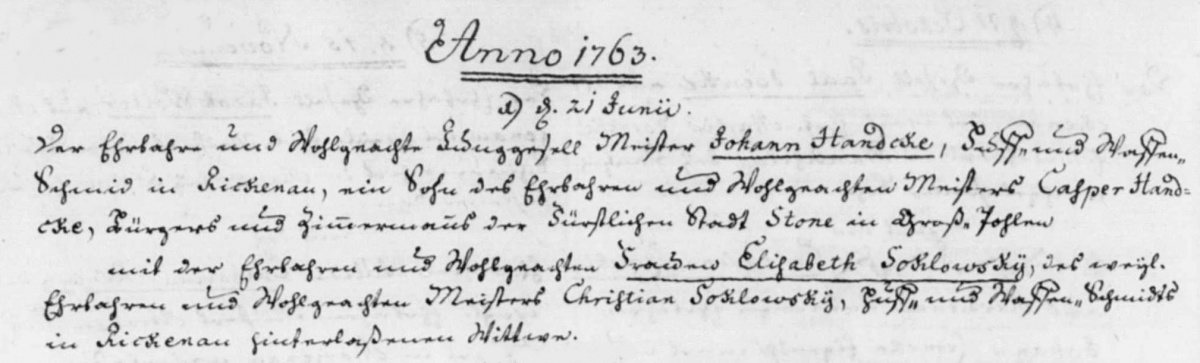 Anno 1763.
1) d. 21 Junii.
Der Ehrbahre und Wohlgeachte Junggesell Meister Johann Handcke, Huff- und Waffen-
Schmid in Rickenau, ein Sohn des Ehrbahren und Wohlgeachten Meisters Casper Hand-
cke, Bürgers und Zimmermanns der Fürstlichen Stadt Stone in Groß-Pohlen
mit der Ehrbahren und Wohlgeachten Frauen Elisabeth Soklowsky, des weyl.
Ehrbahren und Wohlgeachten Meisters Christian Soklowsky, Huff- und Waffen-Schmidts
in Rickenau hinterlaßenen Wittwe.